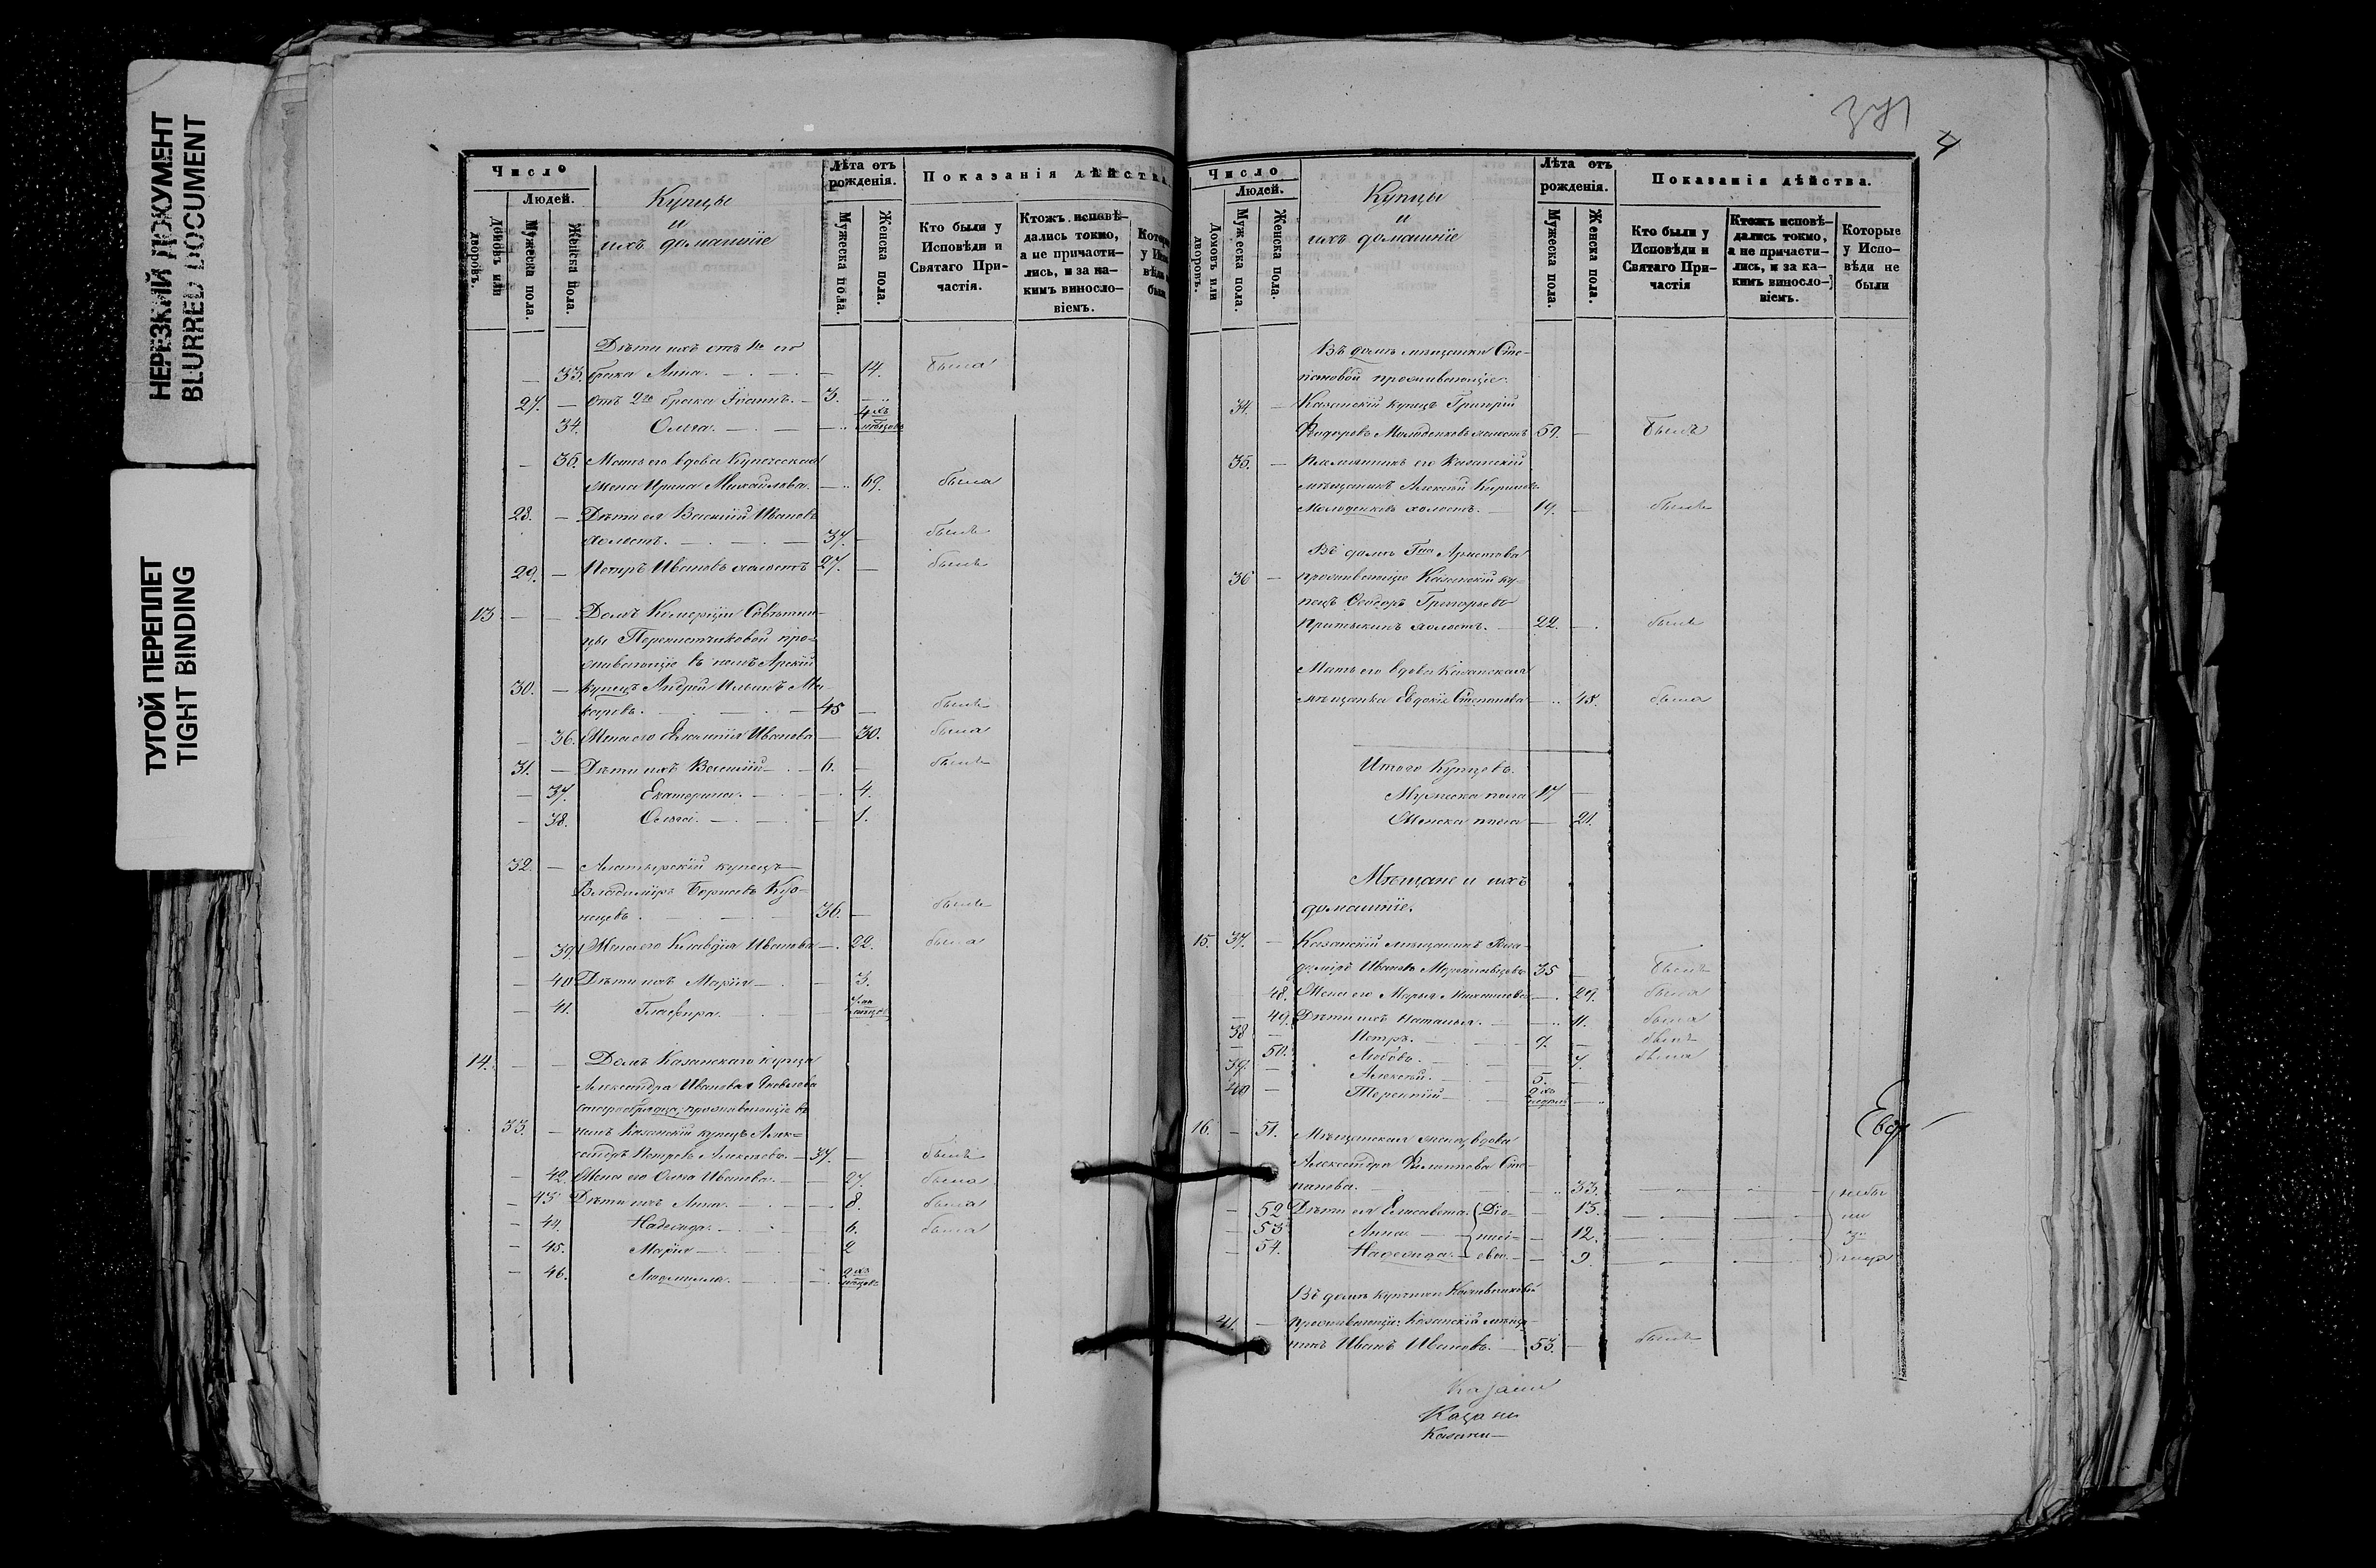 НЕРЕЗКИЙ ДОКУМЕНТ
BLURRED DOCUMENT
ТУГОЙ ПЕРЕПЛЕТ
TIGHT BINDING
Число
Людей.
Домовъ или дворовъ.
Мужеска пола.
Женска пола.
Купцы
и
ихъ домашніе
Лѣта отъ рожденія.
Мужеска пола.
Женска пола.
Показанія дѣйства.
Кто были у Исповѣди и Святаго Причастія.
Ктожъ исповѣ-
дались токмо,
а не причасти-
лись, и за ка-
кимъ винослo-
віемъ.
Дѣти ихъ отъ 1го его
33. брака Анна. — 14. была
27. — Отъ 2го брака Іоаннъ. — 3.
34. Ольга. — 4хъ мѣсцовъ
36. Мать его вдова Купеческая
жена Ирина Михайлова. — 69. была
28. — Дѣти ея Василій Ивановъ
холостъ. — 37. — былъ
29. — Петръ Ивановъ холостъ 27. — былъ
13 — — Домъ Комерціи Совѣтни-
цы про-
живающіе въ немъ Арскій
30. — купецъ Андрей Ильинъ Ма-
каровъ. — 45 — былъ
— 36. Жена его Иванова — 30. была
31. — Дѣти ихъ Василій — 6. — былъ
— 37. Екатерина. — 4.
— 38. Ольга. — 1.
32. — Алатырскій купецъ
Владиміръ Борисовъ Куз-
нецовъ. — 36. — былъ
— 39. Жена его Клавдія Иванова — 22. была
— 40 Дѣти ихъ Марія — 3.
— 41. Глафира.
14. — — Домъ Казанскаго купца
Александра Иванова Яковлева
старообрядца, проживающіе въ
33. — немъ Казанскій купецъ Алек-
сандръ Петровъ Алексѣевъ. — 37. — былъ
— 42. Жена его Ольга Иванова. — 27. была
— 43 Дѣти ихъ Анна. — 8. была
— 44. Надежда. — 6. была
— 45. Марія — 2
— 46. Людмилла. — 2хъ мѣсцовъ
381
4
Число
Людей.
Домовъ или дворовъ.
Мужеска пола.
Женска пола.
Купцы
и
ихъ домашніе
Лѣта отъ рожденія.
Мужеска пола.
Женска пола.
Показанія дѣйства.
Кто были у Исповѣди и Святаго Причастія
Ктожъ исповѣ-
дались токмо,
а не причасти-
лись, и за ка-
кимъ винослo-
віемъ.
Которые у Исповѣди не были
Въ домѣ мѣщанки Сте-
пановой проживающіе:
34. — Казанскій купецъ Григорій
Федоровъ Молоденковъ холостъ 59. — былъ
35. — Племянникъ его Казанскій
мѣщанинъ Алексѣй Кириловъ
Молоденковъ холостъ. — 19. — былъ
Въ домѣ Гна Аристова
36 — проживающіе Казанскій ку-
пецъ Ѳеодоръ Григорьевъ
Притыкинъ холостъ. — 22. — былъ
Мать его вдова Казанская
мѣщанка Евдокія Степанова — 45. была
Итого Купцовъ.
Мужеска пола 17 —
Женска пола — 21.
Мѣщане и ихъ
домашніе.
15. 37. — Казанскій мѣщанинъ Вла-
диміръ Ивановъ 35 — былъ
— 48. Жена его Марья Михайлова — 29. была
— 49. Дѣти ихъ Наталья. — 11. была
38 — Петръ. — 9. — былъ
— 50. Любовь. — 7. была
39. — Алексѣй. — 5. —
40 — Терентій — 2хъ недѣль —
16. — 51. Мѣщанская жена, вдова
Александра Филиппова Сте-
панова. — 33.
— 52 Дѣти ея Елисавета. Діо- — 13.
— 53 Анна. — нисі- — 12.
— 54. Надежда. — евы. — 9.
Въ домѣ купчихи
41. — проживающіе: Казанскій мѣща-
нинъ Иванъ Ивановъ. — 53. — былъ
Казани
Казани
Казани —